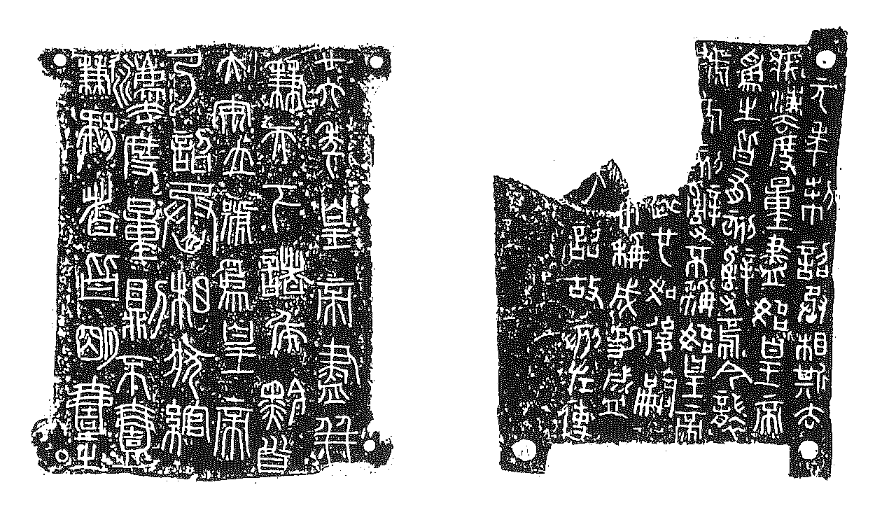 廿六年皇帝盡并
兼天下諸侯黔首
大安立號爲皇帝
乃詔丞相狀綰
灋度量則不壹
歉疑者皆明壹之
元年制詔丞相斯去
疾灋度量盡始皇帝
爲之皆有刻辭焉今襲
號而刻辭不稱始皇帝
也如後嗣
不稱成功盛
詔故刻左使